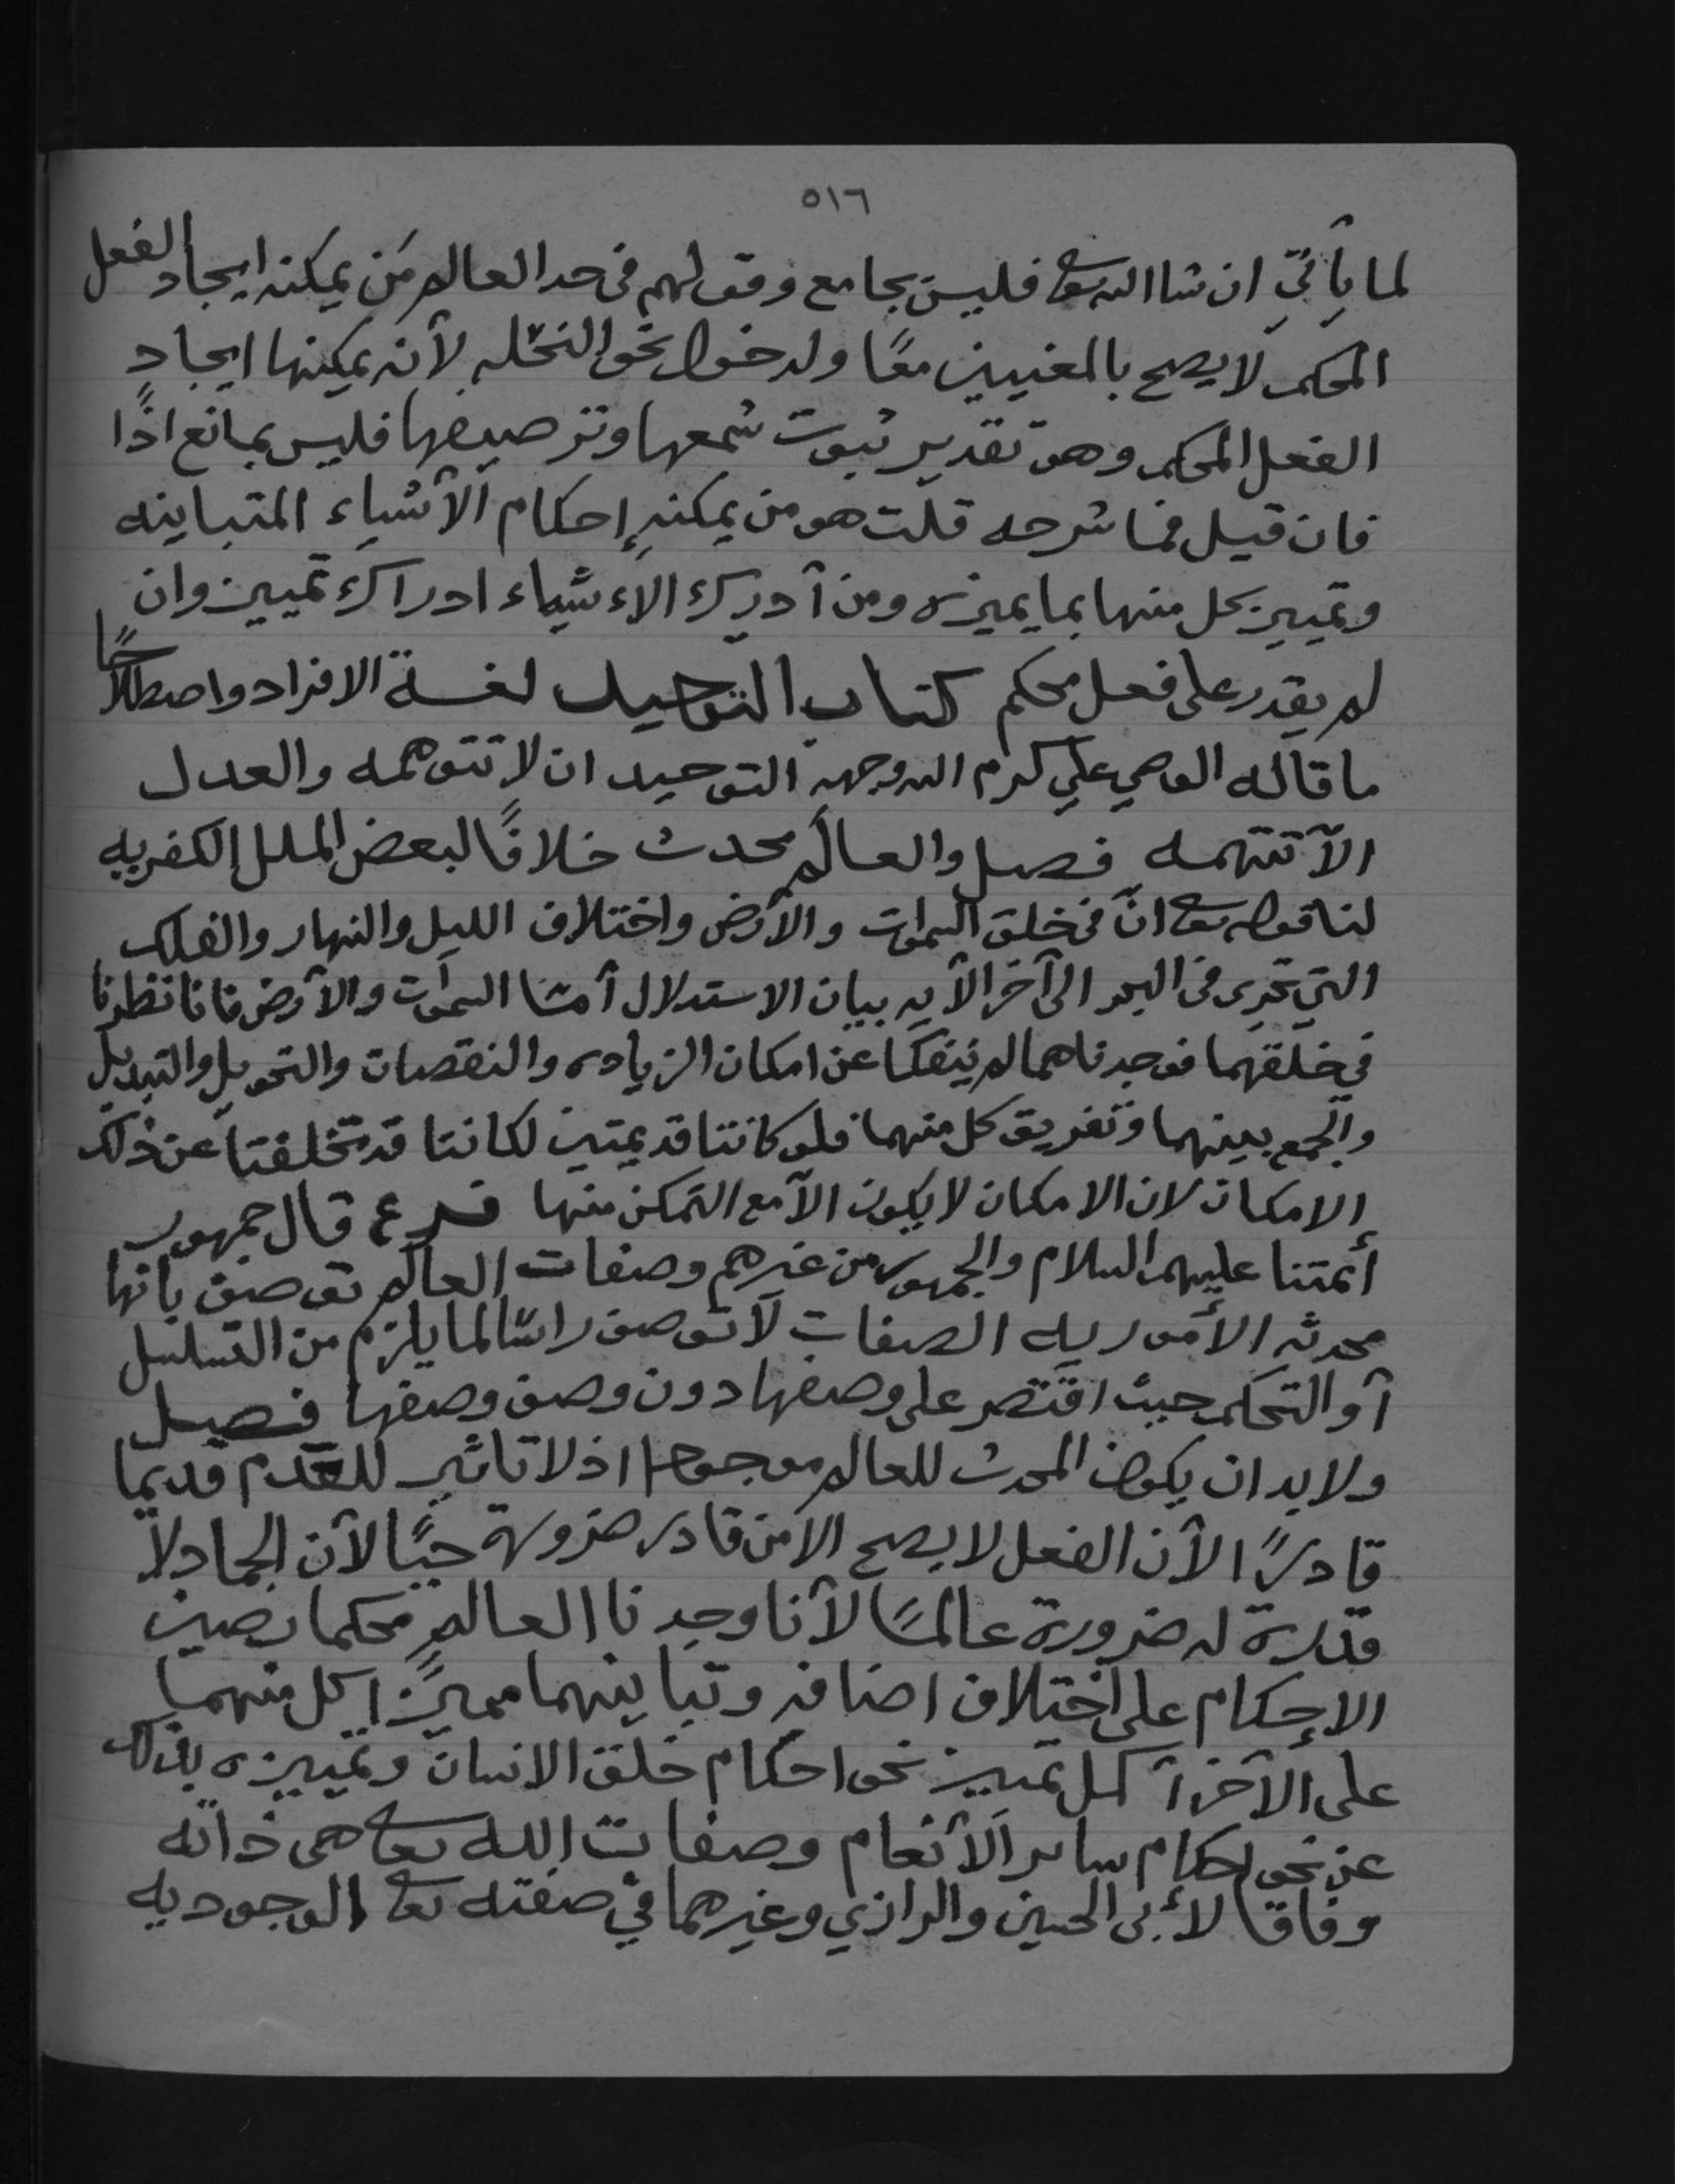 ٥١٦
لما يأتي ان شا الله تعا فليس بجامع وقولهم في حد العالم من يمكنه ايجاد الفعل
المحكم لا يصح بالمغنيين معًا ولدخول نحو النحله لأنه يمكنها ايجاد
الفعل المحكم وهو تقدير ثبوت شمعها وترصيفها فليس بمانع اذًا
فان قيل فما شرحه قلت هو من يمكنه إحكام الأشياء المتباينه
وتمييز كل منها بما يميزه ومن أدرك الاءشياء ادراك تمييز وان
لم يقدر على فعل محكم كتاب التوحيد لغة الافراد واصطلاحًا
ما قاله الوصي علي كرم الله وجهه التوحيد ان لا تتوهمه والعدل
الآ تتهمه فصل والعالم محدث خلافًا لبعض الملل الكفريه
لنا قوله تعا انّ في خلق السموات والأرض واختلاف الليل والنهار والفلك
التي تجرى فى البحر الى آخر الآيه بيان الاستدلال أمّا السموات والأرض فانا نظرنا
في خلقهما فوجدناهما لم ينفكا عن امكان الزياده والنقصان والتحويل والتبديل
والجمع بينهما وتفريق كل منهما فلو كانتا قديمتين لكانتا قد تخلفتا عن ذلك
الامكان لان الامكان لا يكون الآ مع التمكن منها فرع قال جمهور
أئمتنا عليهم السلام والجمهور من غيرهم وصفات العالم توصف بانها
محدثه الأموريه الصفات لا توصف راسًا لما يلزم من التسلسل
أو التحكم حيث اقتصر على وصفها دون وصف وصفها فصل
ولا بد ان يكون المحدث للعالم موجودا اذ لا تاثير للعدم قديما
قادرًا لأن الفعل لا يصح الا من قادر ضرورة حيًّا لأن الجماد لا
قدرة له ضرورة عالمًا لأنا وجدنا العالم محكما رصين
الإحكام على اختلاف اصنافه وتباينهما مميزًا كل منهما
على الآخر أكمل تمييز نحو احكام خلق الانسان وتمييزه بذلك
عن نحو احكام ساير الأنعام وصفات الله تعا هى ذاته
وفاقا لأبى الحسين والرازي وغيرهما في صفته تعا الوجوديه